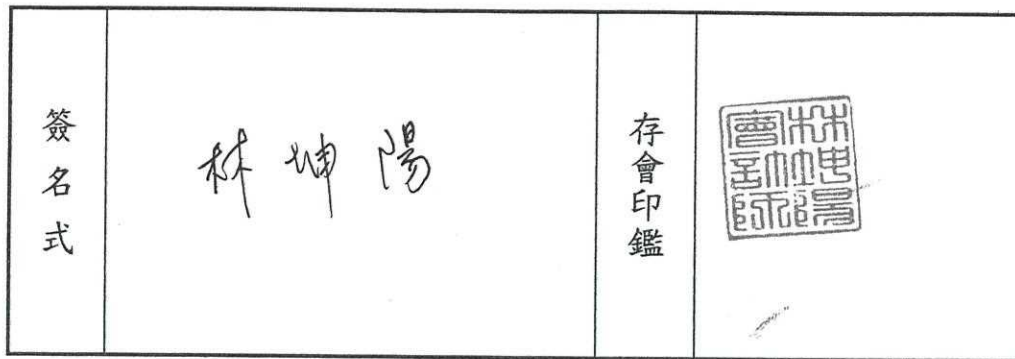 簽名式
林坤陽
存會印鑑
林坤陽
會計師